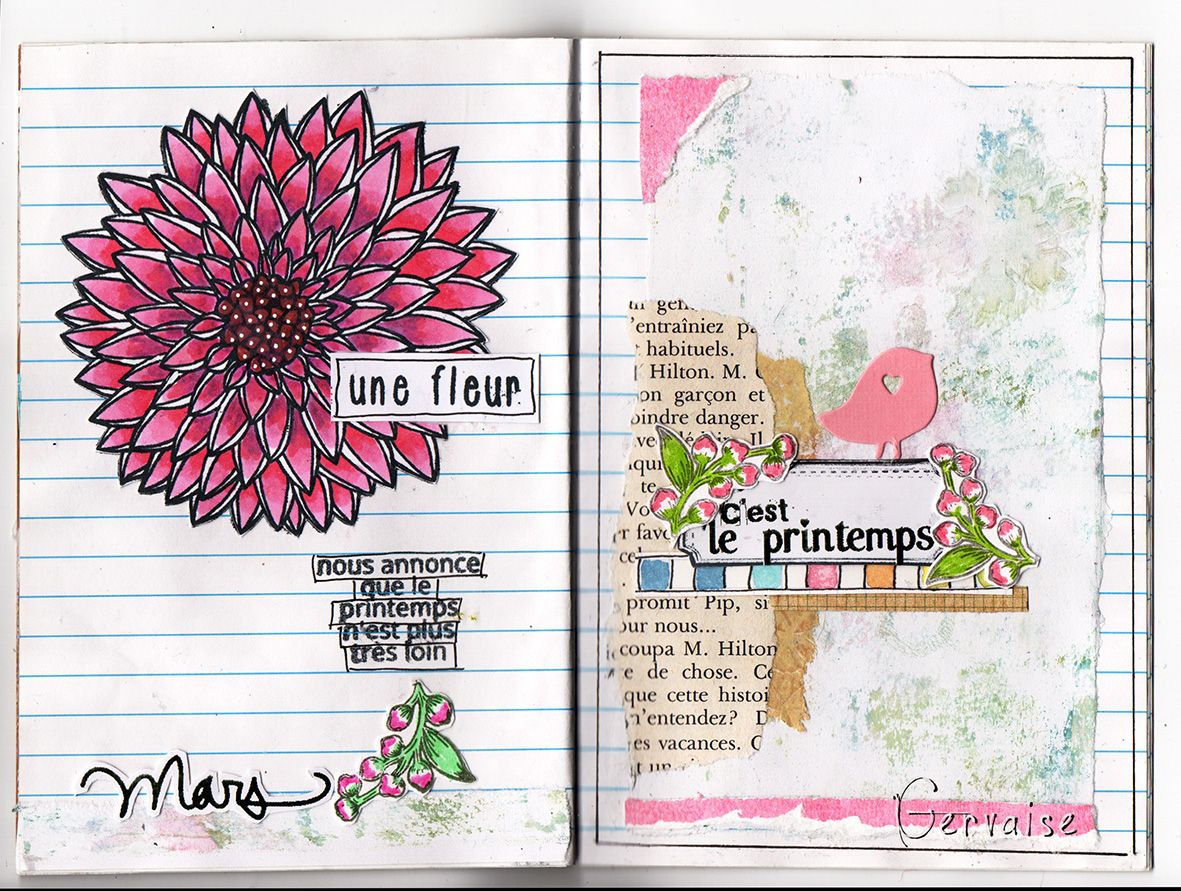 une fleur
nous annonce
que le
printemps
n'est plus
très loin
Mars
'entraîniez pa
habituels.
Hilton. M.
on garçon et
oindre danger.
Il
te
Vo
promit Pip, si
our nous...
coupa M. Hilton
e de chose. Ce
que cette histoi
n'entendez? D
es vacances. C
c'est
le printemps
Gervaise